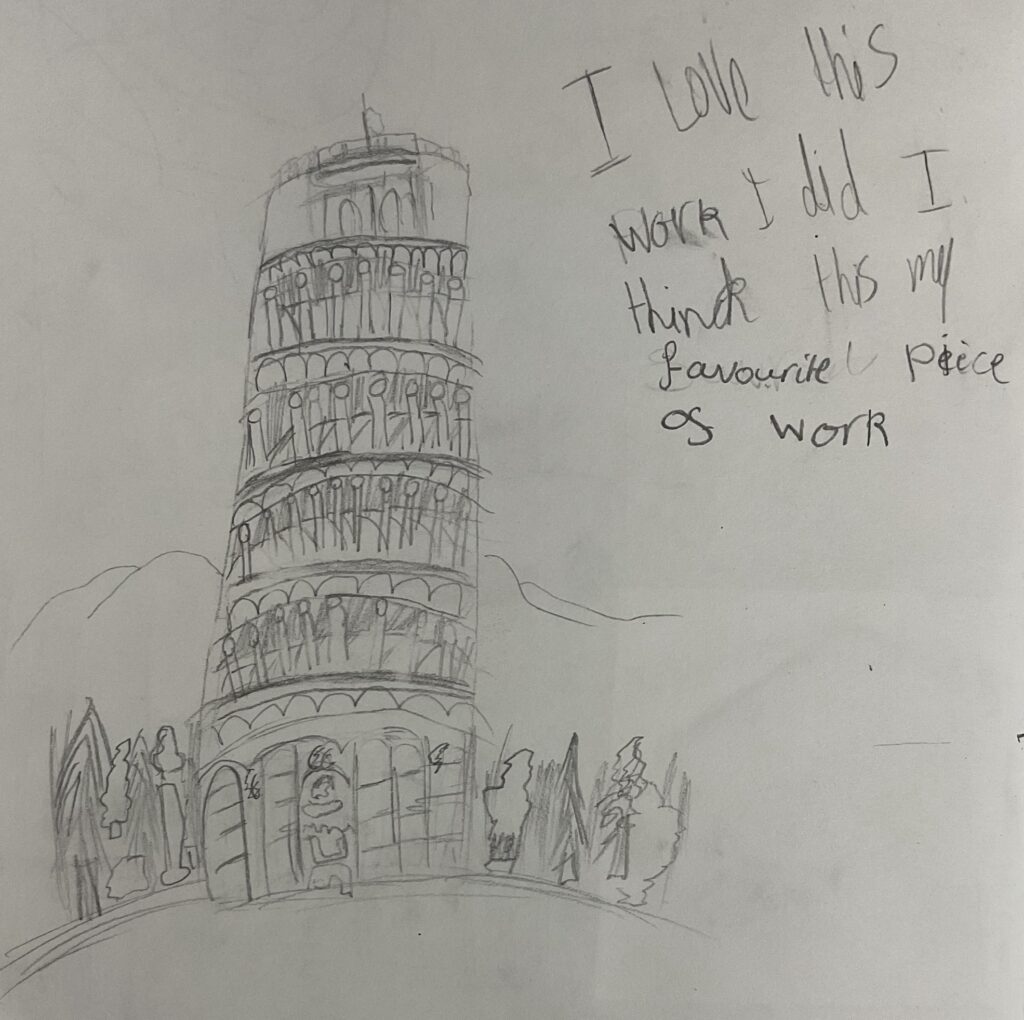 I Love this
work I did I
think this my
favourite piece
of work